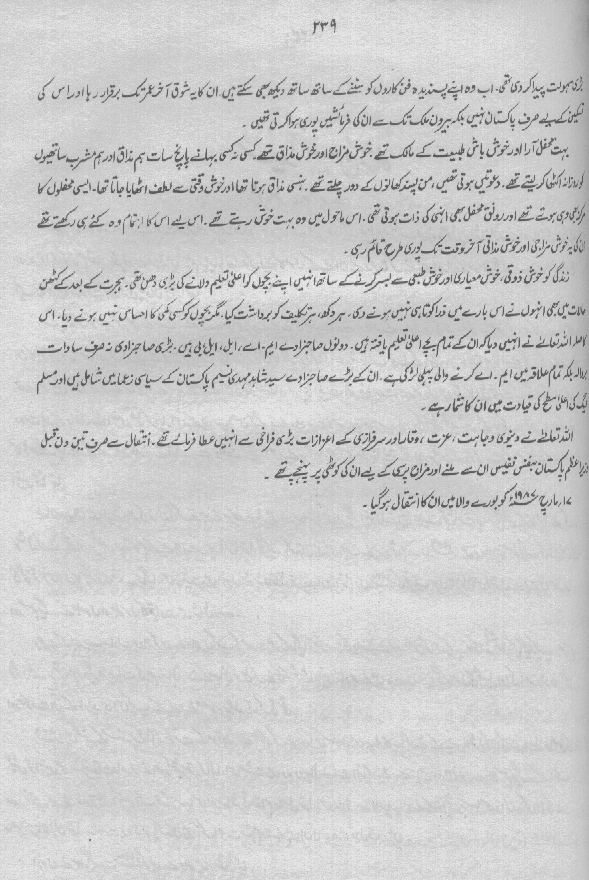 ۲۳۹
بڑی سہولت پیدا کر دی تھی۔ اب وہ اپنے پسندیدہ فن کاروں کو سننے کے ساتھ ساتھ دیکھ بھی سکتے ہیں۔ ان کا یہ شوق آخر عمر تک برقرار رہا اور اس کی
تسکین کے لیے صرف پاکستان نہیں بلکہ بیرون ملک تک سے ان کی فرمائشیں پوری ہوا کرتی تھیں۔
بہت محفل آرا اور خوش باش طبیعت کے مالک تھے خوش مزاج اور خوش مذاق تھے کسی نہ کسی بہانے پانچ سات ہم مذاق اور ہم مشرب ساتھیوں
کو روزانہ اکٹھی کر لیتے تھے۔ دعوتیں ہوتی تھیں، من پسند کھانوں کے دور چلتے تھے۔ ہنسی مذاق ہوتا تھا اور خوش وقتی سے لطف اٹھایا جاتا تھا۔ ایسی محفلوں کا
مرکز بھی وہی ہوتے تھے اور رونق محفل بھی انہی کی ذات ہوتی تھی۔ اس ماحول میں وہ بہت خوش رہتے تھے۔ اس لیے اس کا اہتمام وہ کئے ہی رکھتے تھے
ان کی یہ خوش مزاجی اور خوش مذاقی آخر وقت تک پوری طرح قائم رہی۔
زندگی کو خوش ذوقی، خوش معیاری اور خوش طبعی سے بسر کرنے کے ساتھ انہیں اپنے بچوں کو اعلیٰ تعلیم دلانے کی بڑی دھن تھی۔ ہجرت کے بعد کے کٹھن
حالات میں بھی انہوں نے اس بارے میں ذرا کوتاہی نہیں ہونے دی۔ ہر دکھ، ہر تکلیف کو برداشت کیا۔ مگر بچوں کو کسی کمی کا احساس نہیں ہونے دیا۔ اس
کا صلہ اللہ تعالےٰ نے انہیں دیا کہ ان کے تمام بچے اعلیٰ تعلیم یافتہ ہیں۔ دونوں صاحبزادے ایم۔ اے، ایل، ایل بی ہیں۔ بڑی صاحبزادی نہ صرف سادات
بلکہ تمام علاقہ میں ایم۔ اے کرنے والی پہلی لڑکی ہے۔ ان کے بڑے صاحبزادے سید شاہد مہدی نسیم پاکستان کے سیاسی زعما میں شامل ہیں اور مسلم
لیگ کی اعلیٰ سطح کی قیادت میں ان کا شمار ہے۔
اللہ تعالےٰ نے دنیوی وجاہت، عزت، وقار اور سرفرازی کے اعزازات بڑی فراخی سے انہیں عطا فرمائے تھے۔ انتقال سے صرف تین دن قبل
وزیر اعظم پاکستان بنفس نفیس ان سے ملنے اور مزاج پرسی کے لیے ان کی کوٹھی پر پہنچے تھے۔
۱۷ مارچ ۱۹۸۷ء کو بورے والا میں ان کا انتقال ہو گیا۔